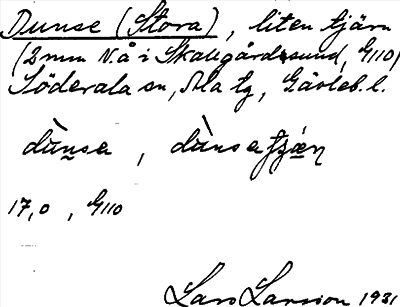 Dunse (Stora), liten tjärn
(2 mm N. å i Skallgårdssund, G110)
Söderala sn, Ala tg, Gävleb. l.
dùnsa, dùnsatjæṇ
17,0, G110
Lars Larsson 1931